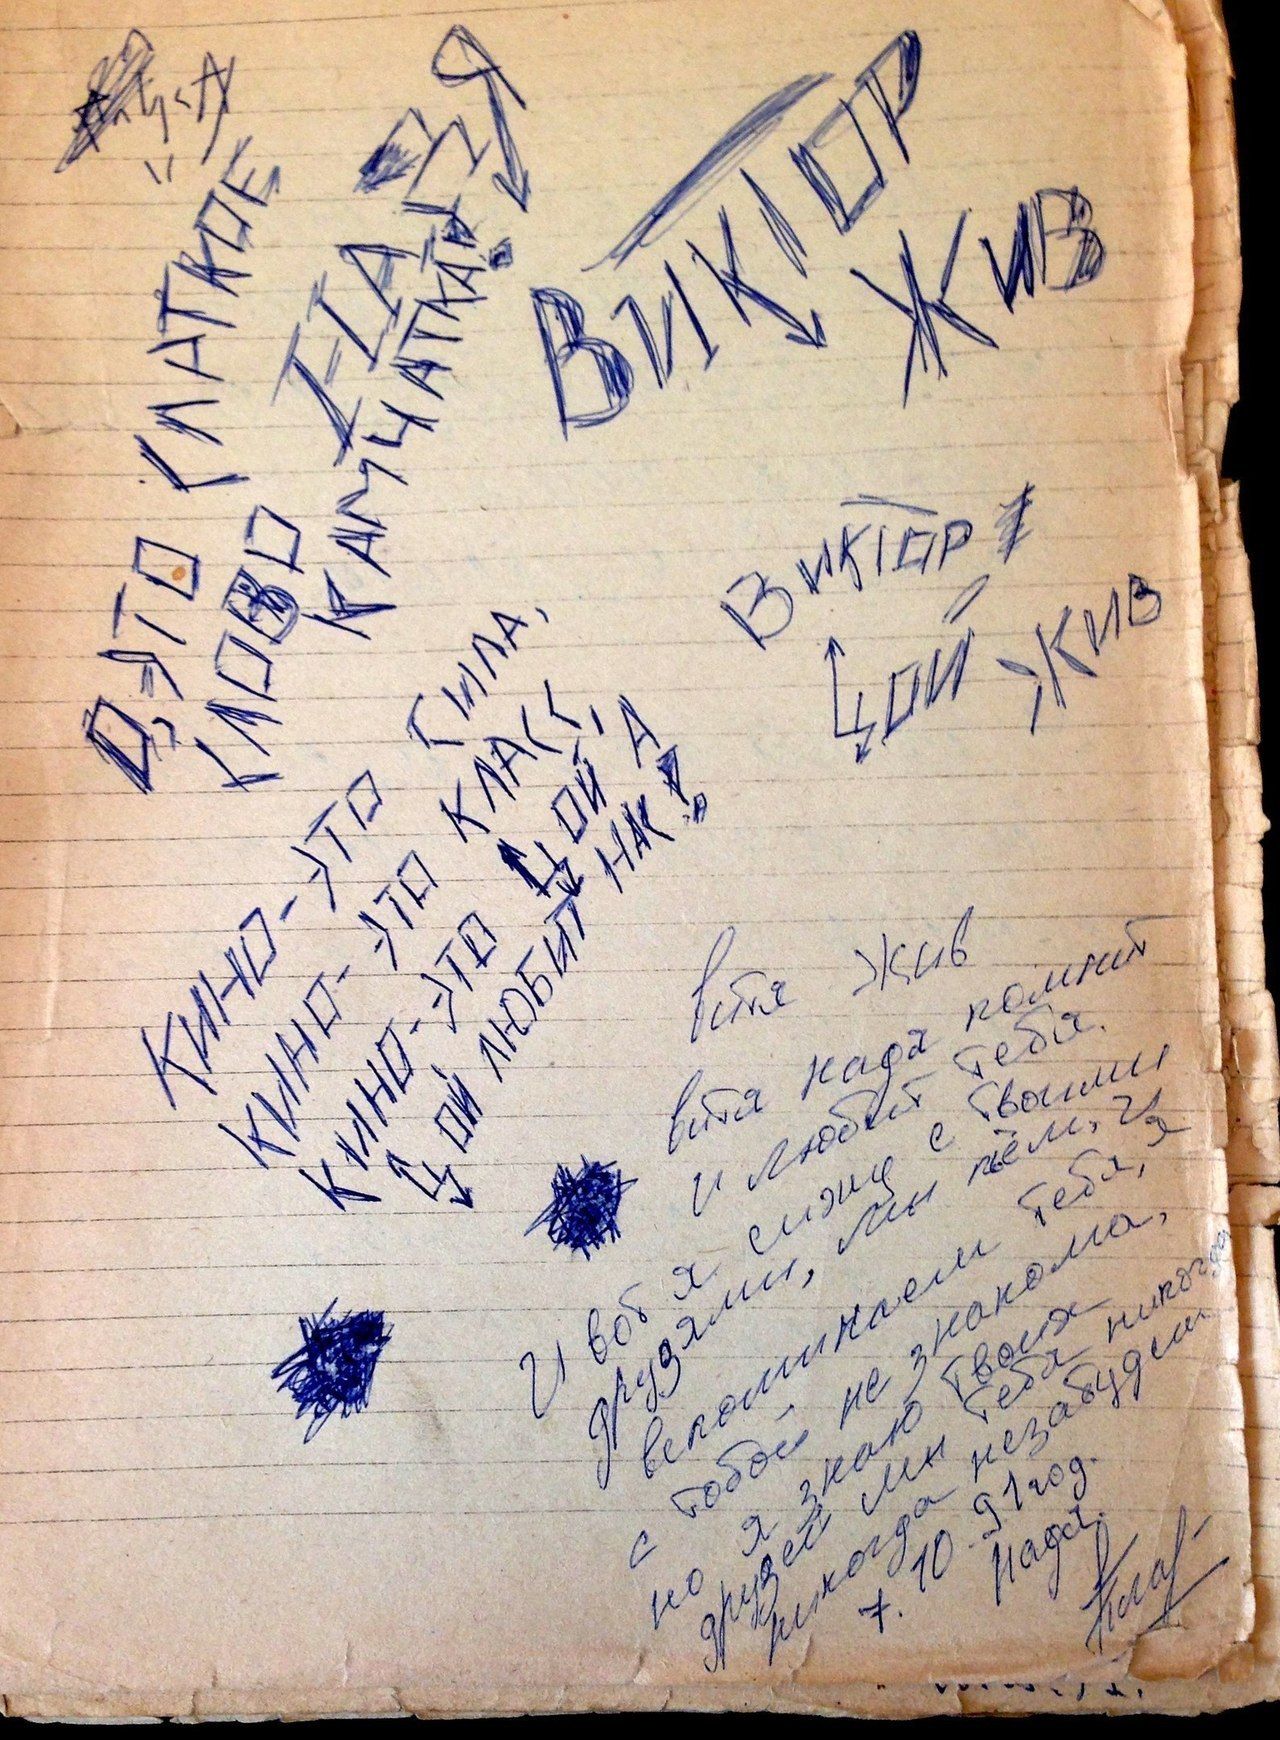 О, ЭТО СЛАДКОЕ
СЛОВО
КАМЧАТКА!
ВИКТОР
ЖИВ
ВИКТОР
ЦОЙ
ЖИВ
КИНО-ЭТО СИЛА,
КИНО-ЭТО КЛАСС,
КИНО-ЭТО ЦОЙ, А
ЦОЙ ЛЮБИТ НАС!
Витя Жив
Витя надя помнит
и любит тебя.
И вот я сижу с твоими
друзями, мы пьём, и
вспоминаем тебя, я
с тобой не знакома,
но я знаю твоих
друзей мы тебя никогда
никогда незабудем
7.10.91 год.
Надя.